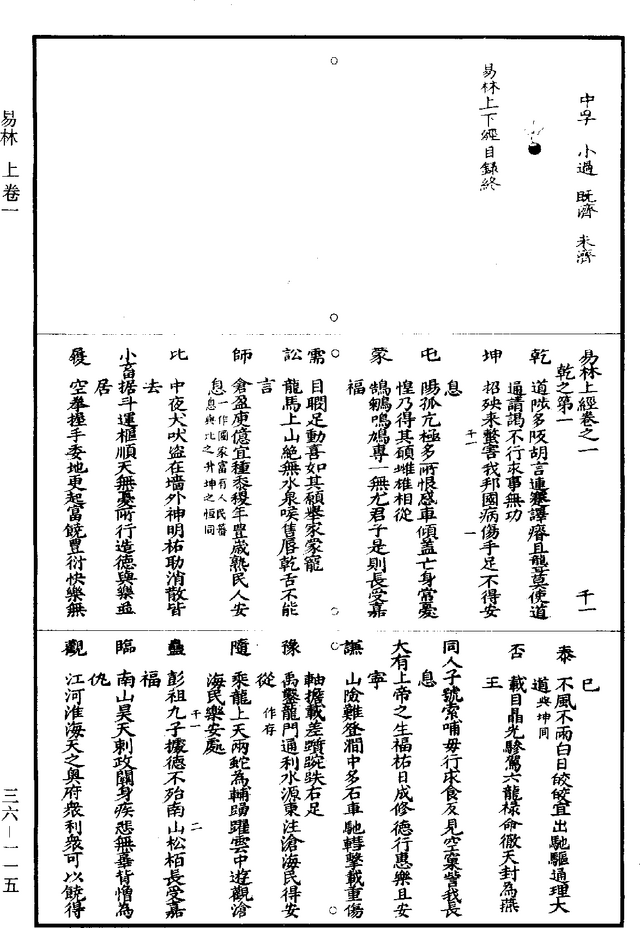 易林 上卷一
三六—一一五
中孚 小過 既濟 未濟
易林上下經目錄終
易林上經卷之一
乾之第一 千一
乾 道陟多阪胡言連蹇譯瘖且聾莫使道
通請謁不行求事無功
坤 招殃来螫害我邦國病傷手足不得安
息
屯 陽孤亢極多所恨惑車傾蓋亡身常憂
惶乃得其碩雌雄相從
蒙 鵠鵴鳴鳩專一無尤君子是則長受嘉
福
需 目瞤足動喜如其願舉家蒙寵
訟 龍馬上山絕無水泉喉焦唇乾舌不能
言
師 倉盈庾億宜種黍稷年豐歲熟民人安
息 一作國家富有人民蕃息與比之升坤之恒同
比 中夜犬吠盜在墻外神明祐助消散皆
去
小畜 据斗運樞順天無憂所行造德與樂並
居
履 空拳握手委地更起富饒豊衍快樂無
已
泰 不風不雨白日皎皎宜出馳驅通理大
道 與坤同
否 載日晶光驂駕六龍祿命徹天封為燕
王
同人 子號索哺母行求食反見空巢訾我長
息
大有 上帝之生福祐日成修德行惠樂且安
寧
謙 山險難登澗中多石車馳轊擊載重傷
軸擔載差躓踠跌右足
豫 禹鑿龍門通利水源東注滄海民得安
從 作存
隨 乘龍上天兩蛇為輔踴躍雲中遊觀滄
海民樂安處
蠱 彭祖九子據德不殆南山松栢長受嘉
福
千一 二
臨 南山昊天刺政閔身疾悲無辜背憎為
仇
觀 江河淮海天之奥府衆利衆可以饒得